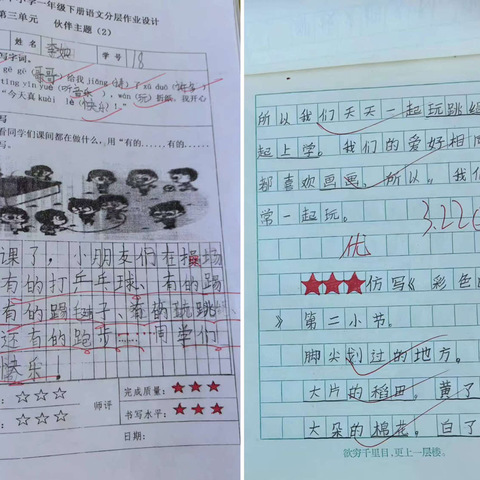 小学一年级下册语文分层作业设计
第三单元 伙伴主题（2）
姓名 学号 18
写字词。
gē ge（哥哥）给我 jiǎng
tīng yīn yuè（听音乐），wán（玩）折纸。我开心
“今天真 kuài lè（快乐）！”
看同学们课间都在做什么，用“有的……有的……
写。
课了，小朋友们在操场
有的打乒乓球、有的踢
有的踢毽子、有的玩跳
还有的跑步……同学们
快乐！
☆☆☆ 师评 完成质量：★★★
☆☆☆ 书写水平：★★★
日期：
所以我们天天一起玩跳绳
起上学。我们的爱好相同
都喜欢画画。所以。我们
常一起玩。
3.22
优
★★★仿写《彩色
》第二小节。
脚尖划过的地方。
大片的稻田。黄了
大朵的棉花。白了
欲穷千里目，更上一层楼。